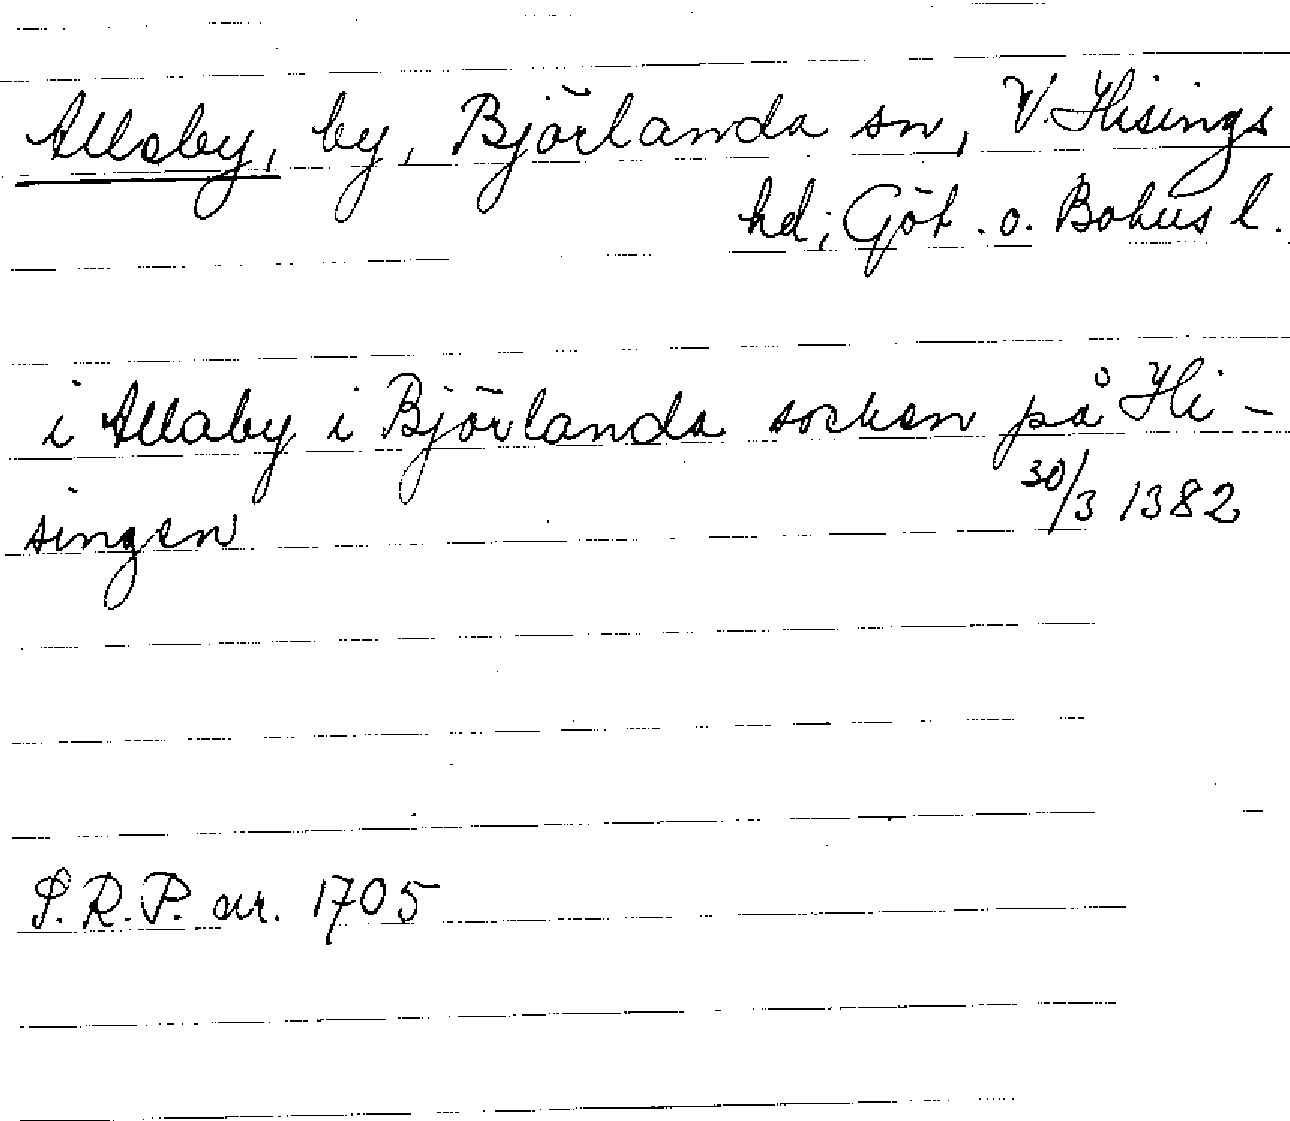 Alleby, by, Björlanda sn, V. Hisings
hd; Göt. o. Bohus l.
i Allaby i Björlanda socken på Hi-
singen 30/3 1382
S.R.P. nr. 1705